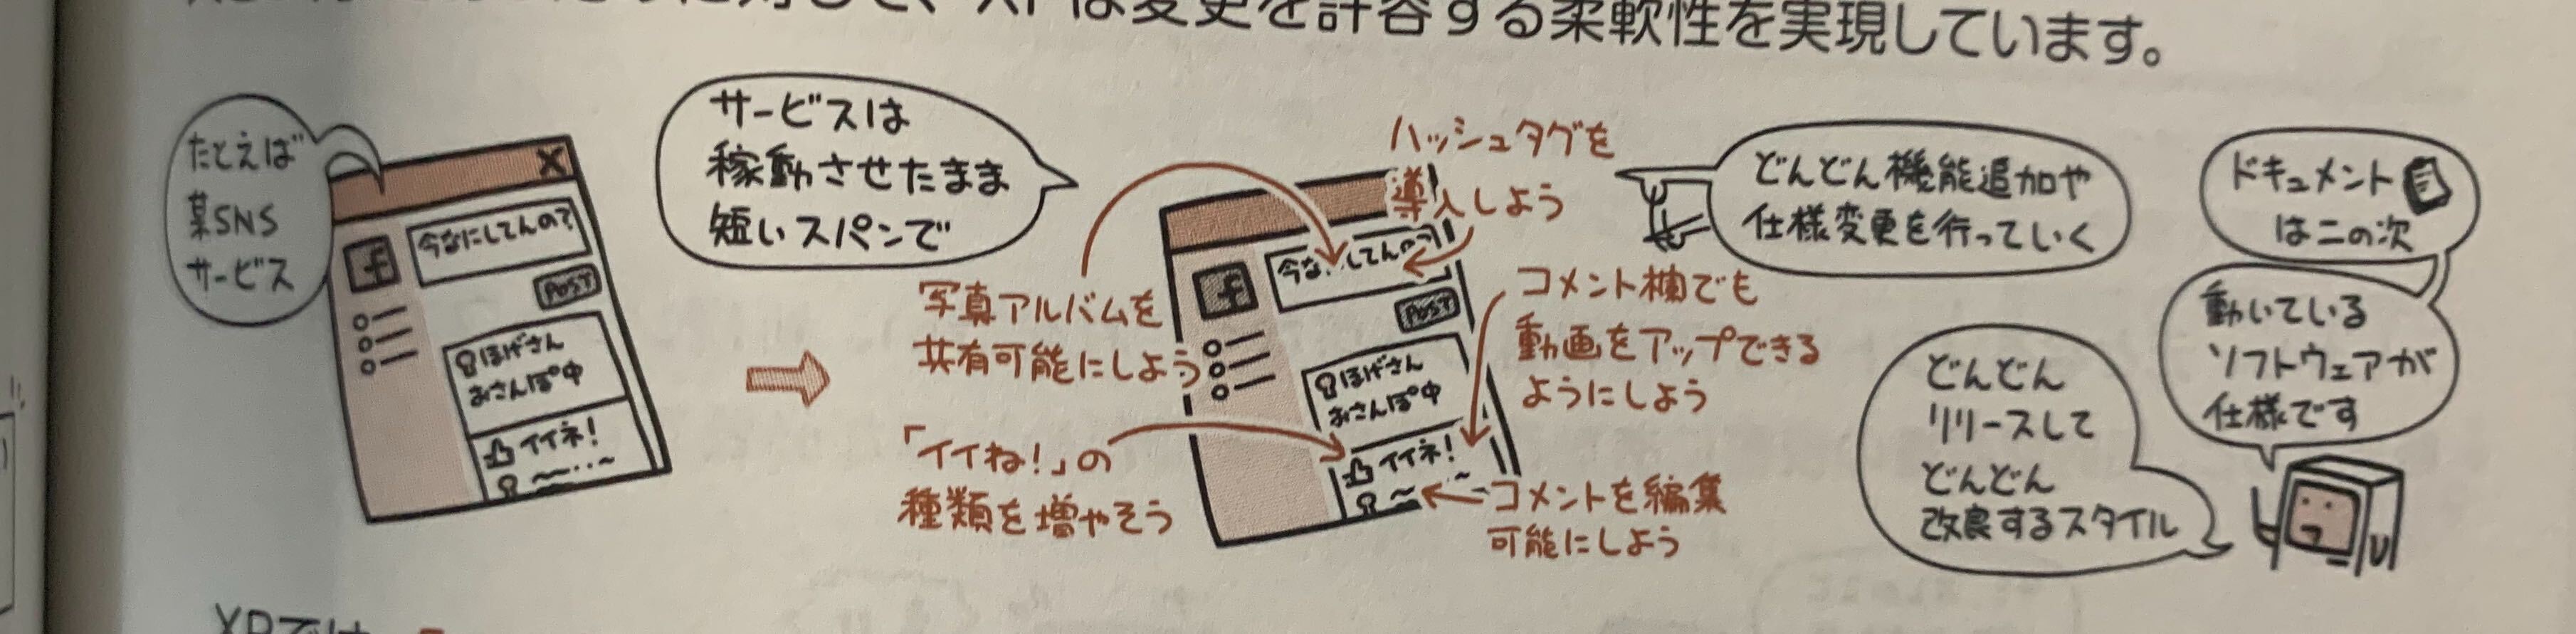 XPは変更を許容する柔軟性を実現しています。
たとえば
某SNS
サービス
今なにしてんの?
f
POST
ほげさん
おさんぽ中
イイネ!
サービスは
稼動させたまま
短いスパンで
写真アルバムを
共有可能にしよう
「イイね!」の
種類を増やそう
ハッシュタグを
導入しよう
今な
してんの
f
POST
ほげさん
おさんぽ中
イイネ!
コメント欄でも
動画をアップできる
ようにしよう
コメントを編集
可能にしよう
どんどん機能追加や
仕様変更を行っていく
ドキュメント
は二の次
動いている
ソフトウェアが
仕様です
どんどん
リリースして
どんどん
改良するスタイル
XPでは